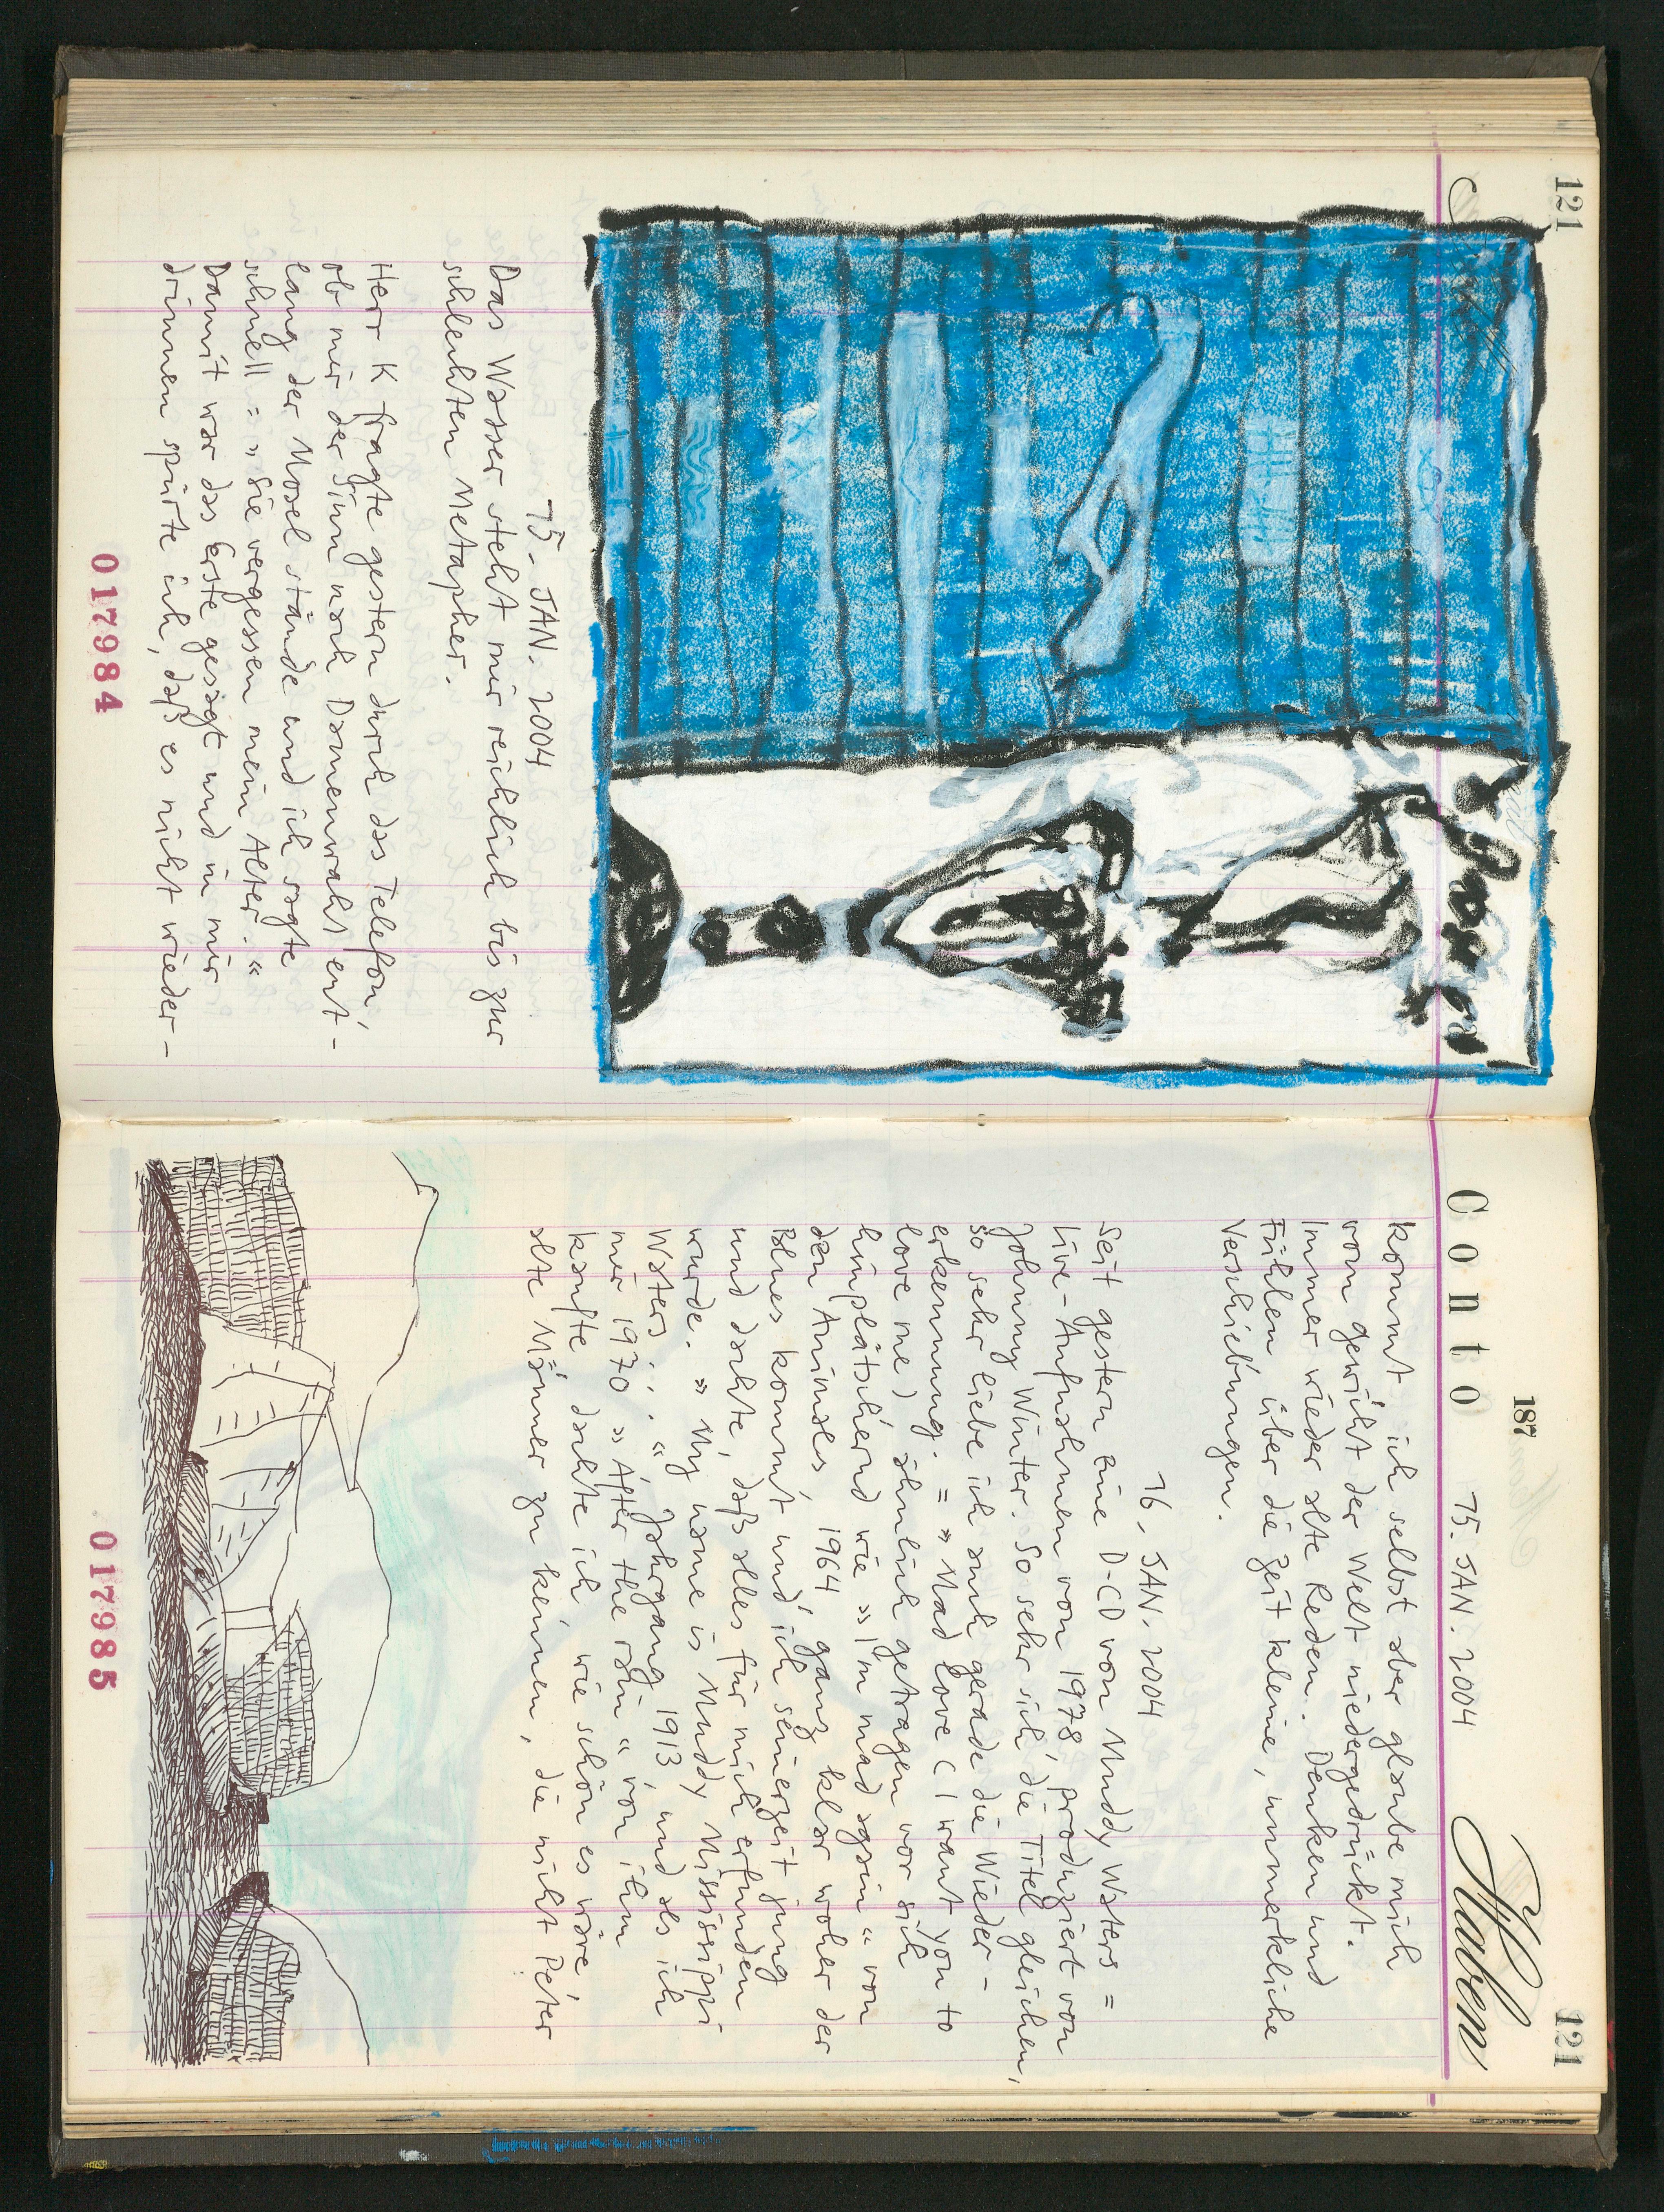 121
15. JAN. 2004
Das Wasser steht mir reichlich bis zur
schlechten Metapher.
Herr K fragte gestern durch das Telefon,
ob mir der Sinn nach Damenwahl ent-
lang der Mosel stände und ich sagte
schnell = » Sie vergessen mein Alter. «
Damit war das Erste gesagt und in mir
drinnen spürte ich, daß es nicht wieder-
017984
187
121
Conto
15. JAN. 2004
Haben
kommt ich selbst aber glaube mich
vom gewicht der Welt niedergedrückt.
Immer wieder alte Reden. Denken und
Fühlen, über die Zeit kleine, unmerkliche
Verschiebungen.
16. JAN. 2004
Seit gestern eine D-CD von Muddy Waters =
Live-Aufnahmen von 1978, produziert von
Johnny Winter. So sehr sich die Titel gleichen,
so sehr liebe ich auch gerade die Wieder-
erkennung. = » Mad Love ( I want you to
love me ) ähnlich getragen vor sich
hinplätschernd wie » I'm mad again « von
den Animals 1964 ganz klar woher der
Blues kommt und ich seinerzeit jung
und dachte, daß alles für mich erfunden
wurde. » My name is Muddy Mississippi
Waters ... « Jahrgang 1913 und als ich
mir 1970 » After the rain « von ihm
kaufte dachte ich wie schön es wäre,
alte Männer zu kennen, die nicht Peter
017985